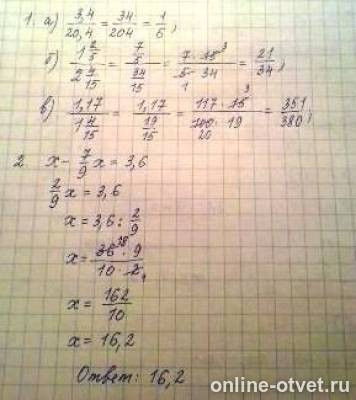 1. а) 3,4/20,4 = 34/204 = 1/6;
б) 1 2/5 / 2 4/15 = 7/5 / 34/15 = 7·15 3 / 5·34 1 = 21/34;
в) 1,17 / 1 4/15 = 1,17 / 19/15 = 117·15 3 / 100·19 20 = 351/380;
2. x - 7/9 x = 3,6
2/9 x = 3,6
x = 3,6 : 2/9
x = 36 18 · 9 / 10 · 2 1
x = 162/10
x = 16,2
Ответ: 16,2
online-otvet.ru